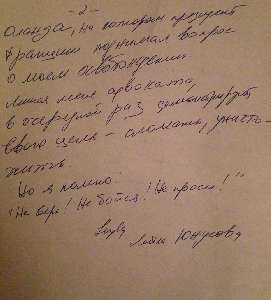 - 2 -
Оланда, на котором президент
Франции поднимал вопрос
о моем освобождении
Лишая меня адвоката,
в очередной раз демонстрируют
свою цель - сломать, уничто-
жить.
Но я помню:
"Не верь! Не бойся! Не проси!"
Лейла Юнусова